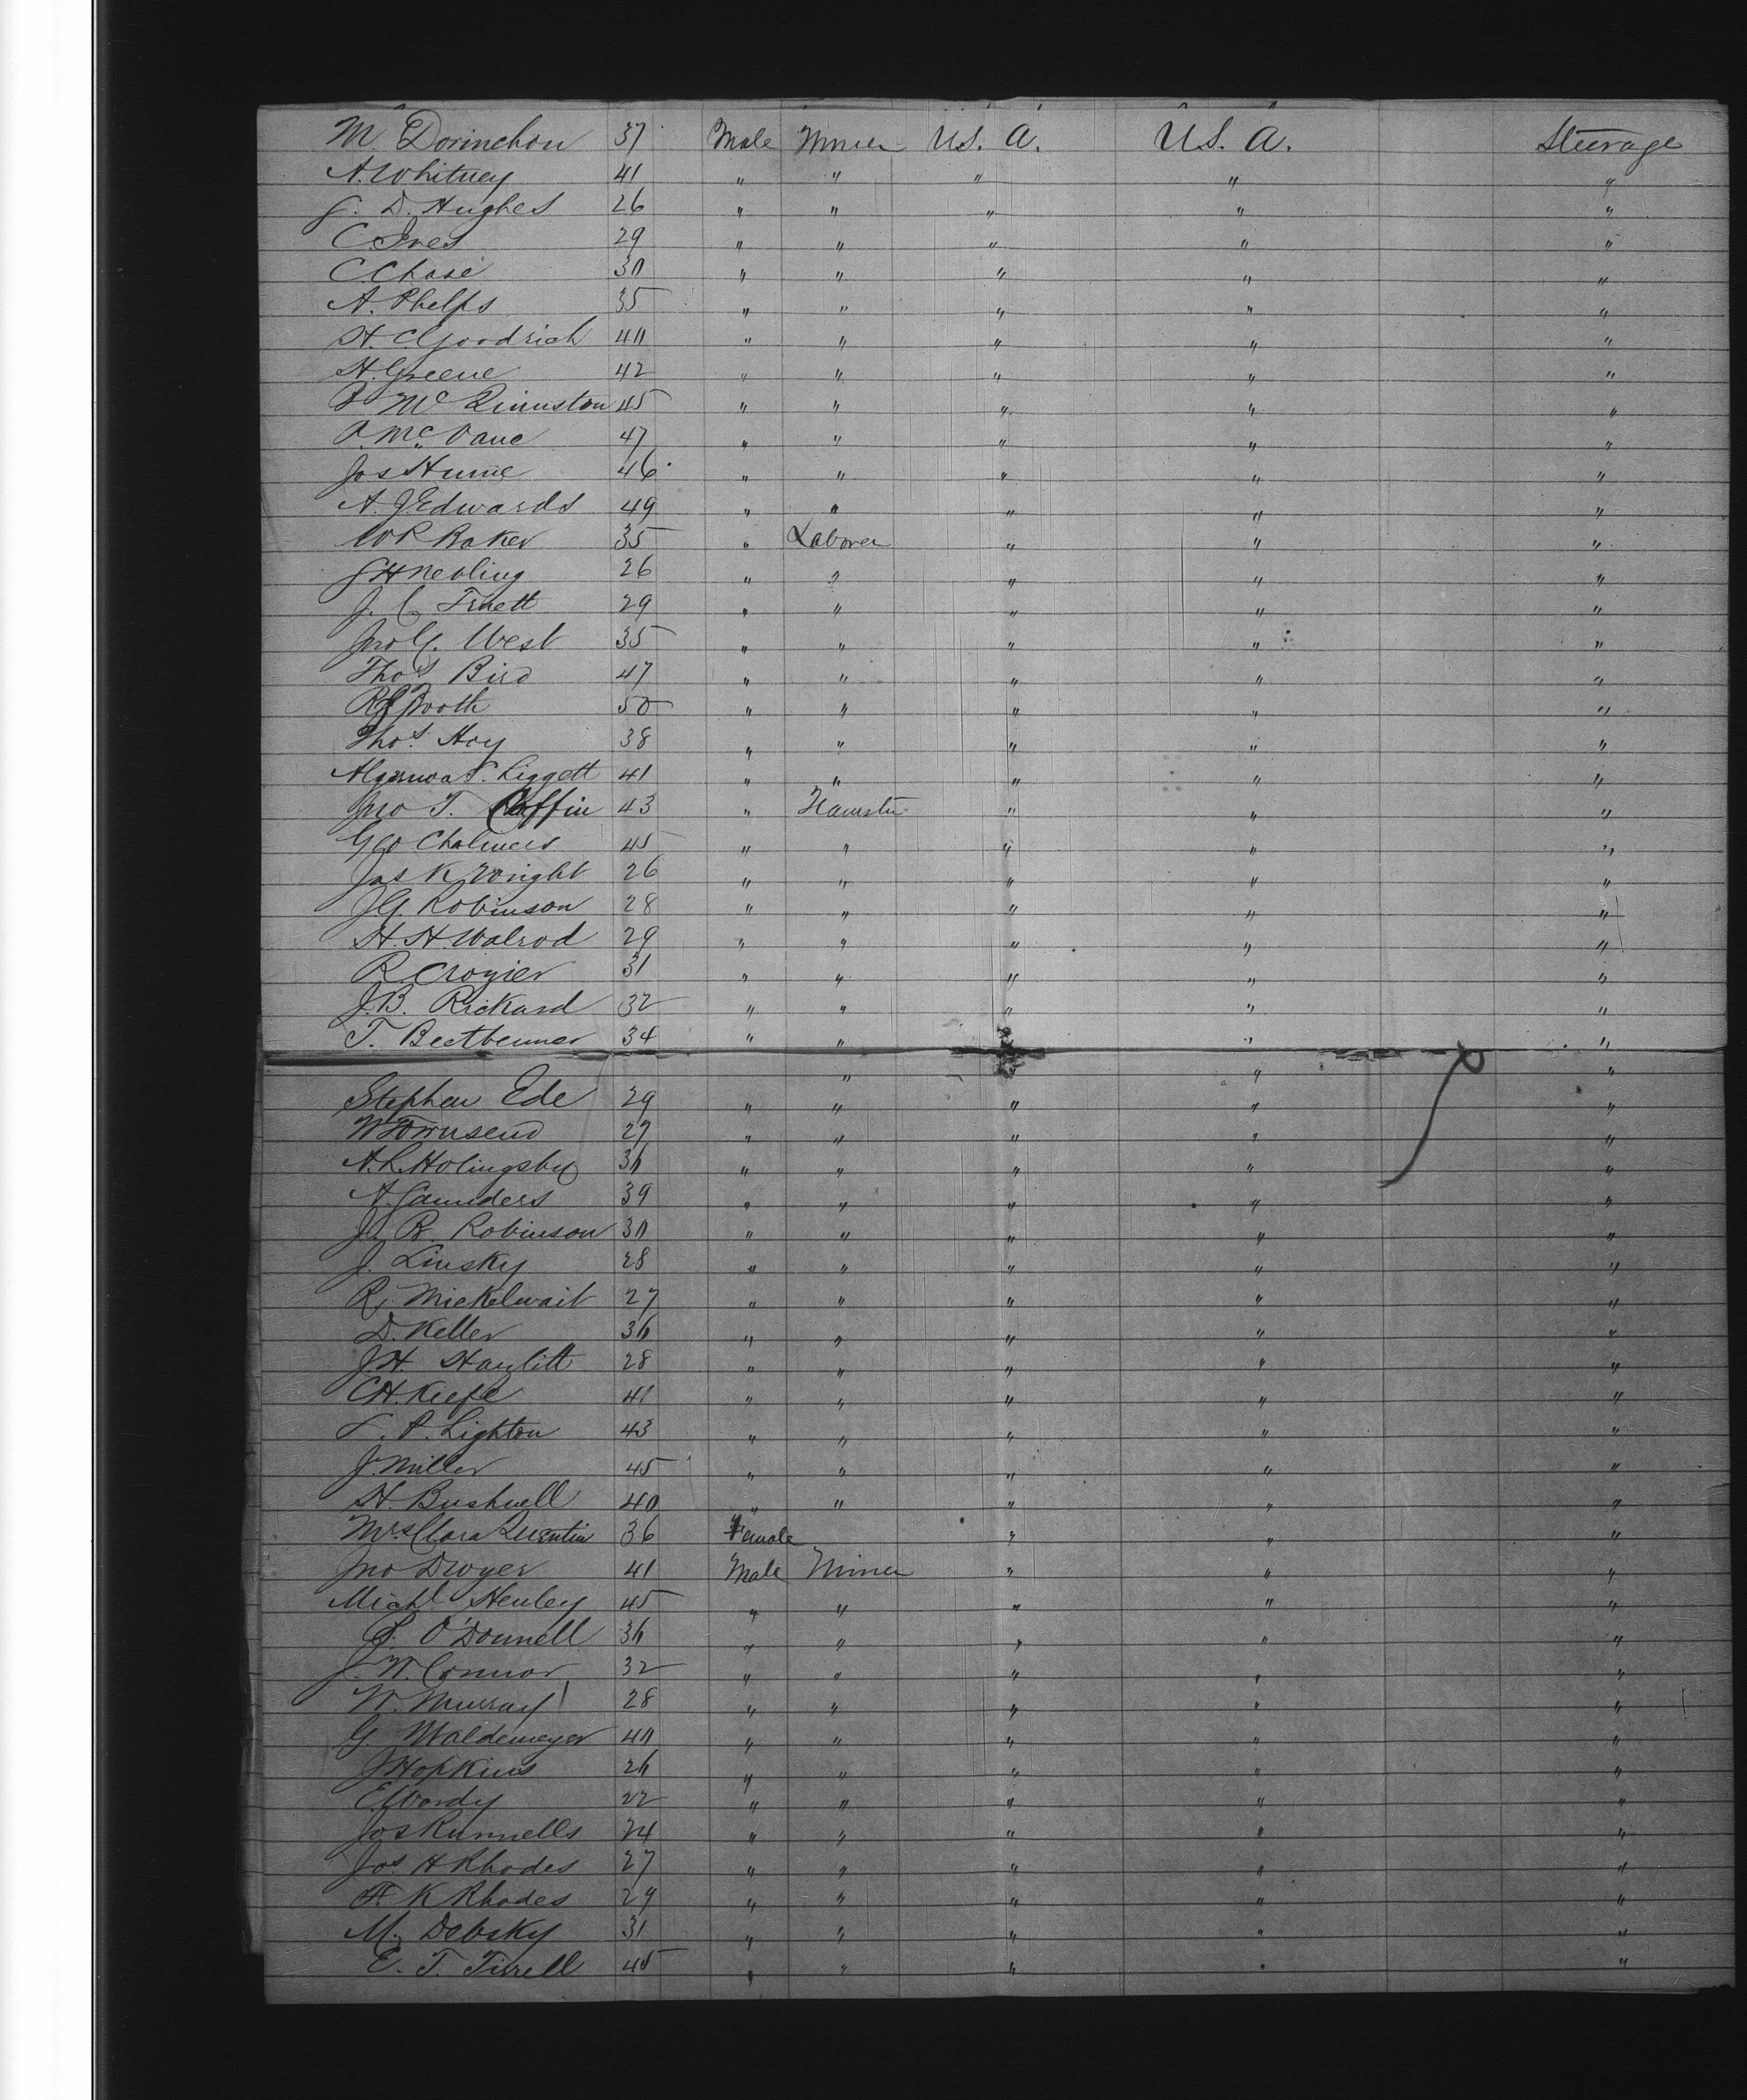 M. Dorinchon 37 Male Miner U.S. A. U.S. A. Steerage
A. Whitney 41 " " " " "
J. D. Hughes 26 " " " " "
C. Ives 29 " " " " "
C. Chase 30 " " " " "
A. Phelps 35 " " " " "
H. C. Goodrich 40 " " " " "
H. Greene 42 " " " " "
Mc 45 " " " " "
Mc Vane 47 " " " " "
Jos Hume 46 " " " " "
A. J. Edwards 49 " " " " "
W R Baker 35 " Laborer " " "
J H Nebling 26 " " " " "
J. C. Truett 29 " " " " "
Jno G. West 35 " " " " "
Thos Bird 47 " " " " "
Booth 50 " " " " "
Thos. Hoy 38 " " " " "
S. Liggett 41 " " " " "
Jno T. Coffin 43 " Teamster " " "
Geo Chalmers 45 " " " " "
Jas K Wright 26 " " " " "
J G. Robinson 28 " " " " "
H. H. Walrod 29 " " " " "
R. Crozier 31 " " " " "
J. B. Rickard 32 " " " " "
T. 34 " " " " "
" " "
Stephen Ede 29 " " " " "
W Townsend 27 " " " " "
A. L. Holingsby 30 " " " " "
A. Saunders 39 " " " " "
J. R. Robinson 30 " " " " "
J. Linsky 28 " " " " "
R. Mickelwait 27 " " " " "
D. Keller 36 " " " " "
J H. 28 " " " " "
C H. Keefe 41 " " " " "
P. Lighton 43 " " " " "
J. Miller 45 " " " " "
H. Bushnell 40 " " " " "
Mrs Clara Quentin 36 Female " " "
Jno Dwyer 41 Male Miner " " "
Michl Henley 45 " " " " "
P. O'Donnell 36 " " " " "
J. W. Connor 32 " " " " "
W. Murray 28 " " " " "
G. Waldemeyer 40 " " " " "
J Hopkins 26 " " " " "
E. Wardy 22 " " " " "
Jos Runnells 24 " " " " "
Jos H Rhodes 27 " " " " "
F K Rhodes 29 " " " " "
M. Debsky 31 " " " " "
E. T. Tirrell 45 " " " " "